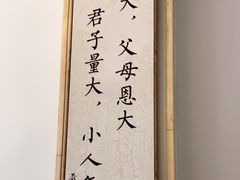 大，父母恩大
君子量大，小人气